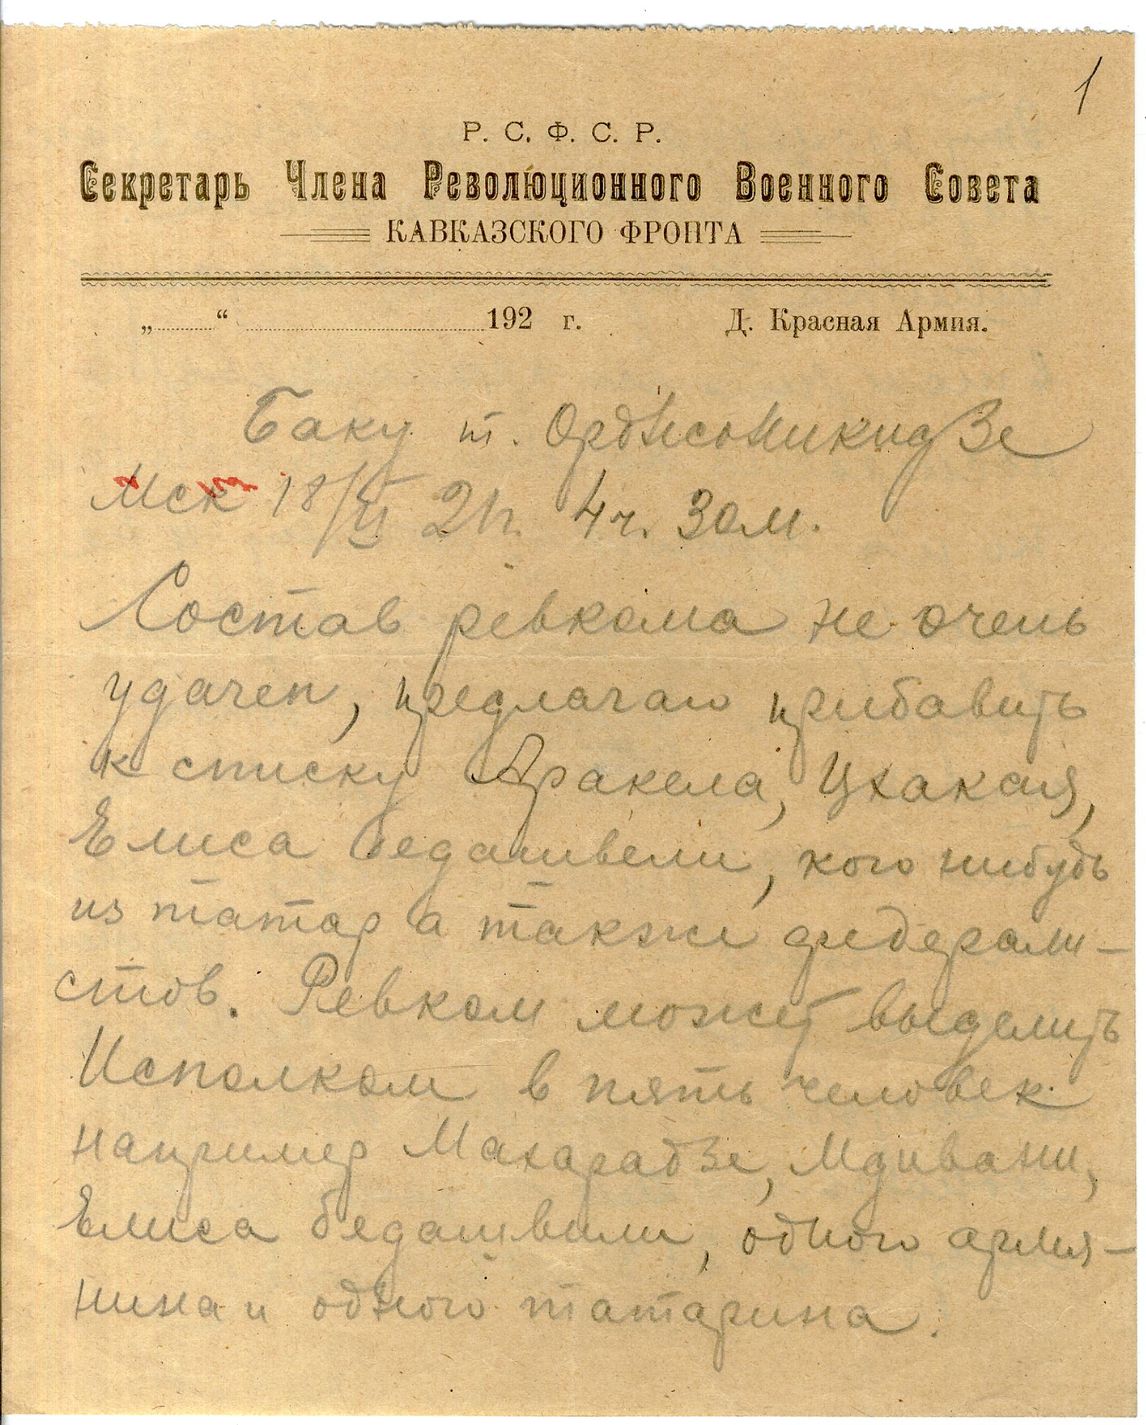 1
Р. С. Ф. С. Р.
Секретарь Члена Революционного Военного Совета
КАВКАЗСКОГО ФРОНТА
„ “ 192 г. Д. Красная Армия.
Баку т. Орджоникидзе
Мск 18/II 21г. 4ч. 30м.
Состав ревкома не очень
удачен, предлагаю прибавить
к списку Аракела, Цхакая,
Елиса бедашвели, кого нибудь
из татар а также федерали-
стов. Ревком может выделить
Исполком в пять человек
например Махарадзе, Мдивани,
Елиса бедашвили, одного армя-
нина и одного татарина.